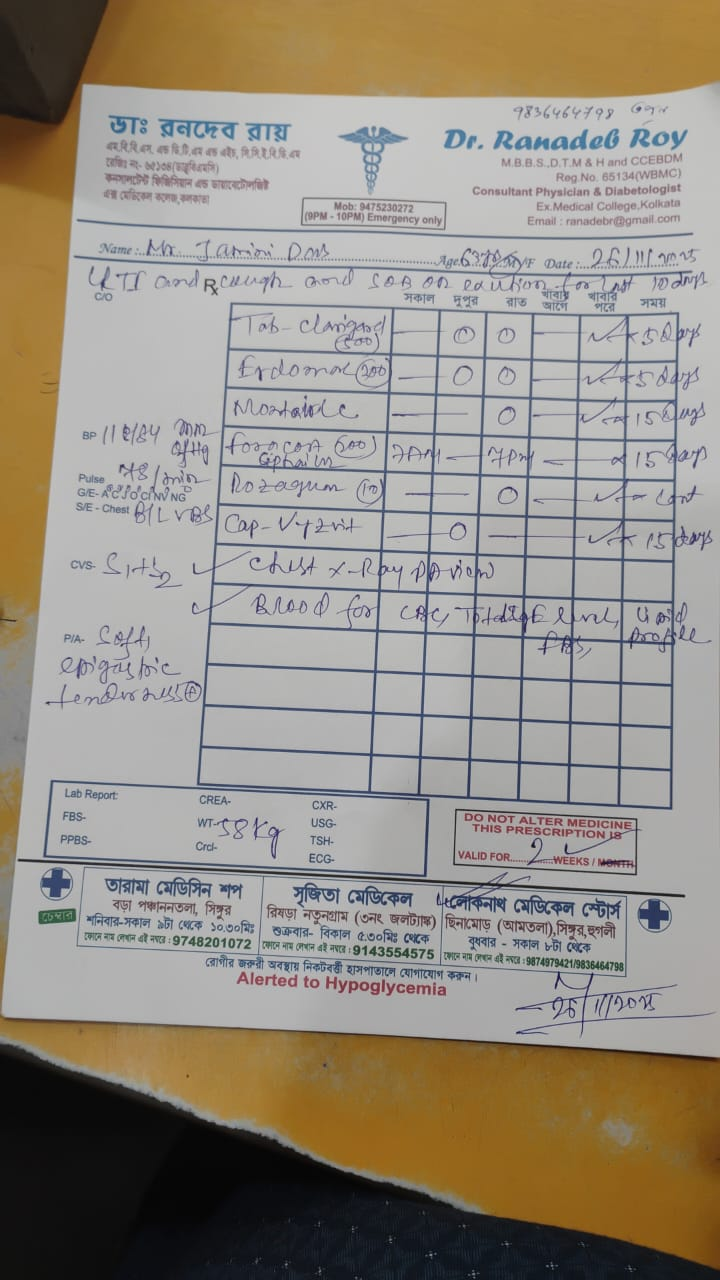 9836464798
ডাঃ রনদেব রায়
এম.বি.বি.এস, এফ.ডি.টি.এম এন্ড এইচ, সি.সি.ই.বি.ডি.এম
রেজিঃ নং- ৬৫১৩৪(ডাব্লুবিএমসি)
কনসালটেন্ট ফিজিসিয়ান এন্ড ডায়াবেটোলজিষ্ট
এক্স মেডিকেল কলেজ,কলকাতা
Mob: 9475230272
(9PM - 10PM) Emergency only
Dr. Ranadeb Roy
M.B.B.S.,D.T.M & H and CCEBDM
Reg.No. 65134(WBMC)
Consultant Physician & Diabetologist
Ex.Medical College,Kolkata
Email : ranadebr@gmail.com
Name : Mr. Jamini Das Age 63 M/F Date : 26/11/2025
and cough and SOB on for last 10 days
C/O Rx
সকাল দুপুর রাত খাবার আগে খাবার পরে সময়
Tab- (500) — 0 0 — 5 days
(300) — 0 0 — 5 days
— — 0 — 15 days
Foracort 7AM — 7PM — 15 days
(10) — 0 — cont
Cap- — 0 — 15 days
Chest X-Ray PA view
Blood for CBC, Total IgE level, Lipid profile
FBS,
BP mm of Hg
Pulse 78/min
G/E- A C J O CI NV NG
S/E - Chest B/L VBS
CVS- S1+S2
P/A- Soft,
epigastric
tenderness
Lab Report:
FBS-
PPBS-
CREA-
WT- 58 Kg
Crcl-
CXR-
USG-
TSH-
ECG-
DO NOT ALTER MEDICINE
THIS PRESCRIPTION IS
VALID FOR 2 WEEKS / MONTH
চেম্বার
তারামা মেডিসিন শপ
বড়া পঞ্চাননতলা, সিঙ্গুর
শনিবার-সকাল ৯টা থেকে ১০.৩০মিঃ
ফোনে নাম লেখান এই নম্বরে : 9748201072
সৃজিতা মেডিকেল
রিষড়া নতুনগ্রাম (৩নং জলট্যাঙ্ক)
শুক্রবার- বিকাল ৫.৩০মিঃ থেকে
ফোনে নাম লেখান এই নম্বরে : 9143554575
লোকনাথ মেডিকেল স্টোর্স
ছিনামোড় (আমতলা),সিঙ্গুর,হুগলী
বুধবার - সকাল ৮টা থেকে
ফোনে নাম লেখান এই নম্বরে :9874979421/9836464798
রোগীর জরুরী অবস্থায় নিকটবর্ত্তী হাসপাতালে যোগাযোগ করুন।
Alerted to Hypoglycemia
26/11/2025